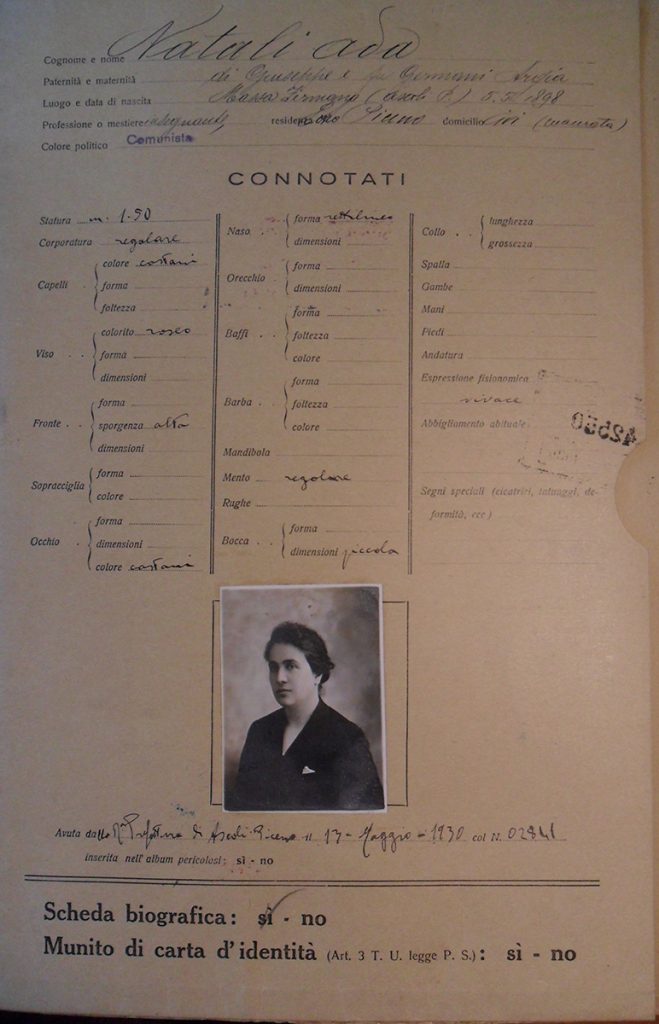 Cognome e nome Natali Ada
Paternità e maternità di Giuseppe e fu Germani Argia
Luogo e data di nascita Massa Fermana (Ascoli P.) 5.3. 1898
Professione o mestiere insegnante residenza Piceno domicilio ivi
Colore politico Comunista
CONNOTATI
Statura m. 1.50
Corporatura regolare
Capelli
colore castani
forma
foltezza
Viso
colorito roseo
forma
dimensioni
Fronte
forma
sporgenza alta
dimensioni
Sopracciglia
forma
colore
Occhio
forma
dimensioni
colore castani
Naso
forma rettilineo
dimensioni
Orecchio
forma
dimensioni
Baffi
forma
foltezza
colore
Barba
forma
foltezza
colore
Mandibola
Mento regolare
Rughe
Bocca
forma
dimensioni piccola
Collo
lunghezza
grossezza
Spalla
Gambe
Mani
Piedi
Andatura
Espressione fisionomica
vivace
Abbigliamento abituale
42550
Segni speciali (cicatrici, tatuaggi, de-
formità, ecc)
Avuta dalla Rª Prefettura di Ascoli Piceno il 17 - Maggio - 1930 col N. 02841
inserita nell'album pericolosi; sì - no
Scheda biografica: sì - no
Munito di carta d'identità (Art. 3 T. U. legge P. S.): sì - no